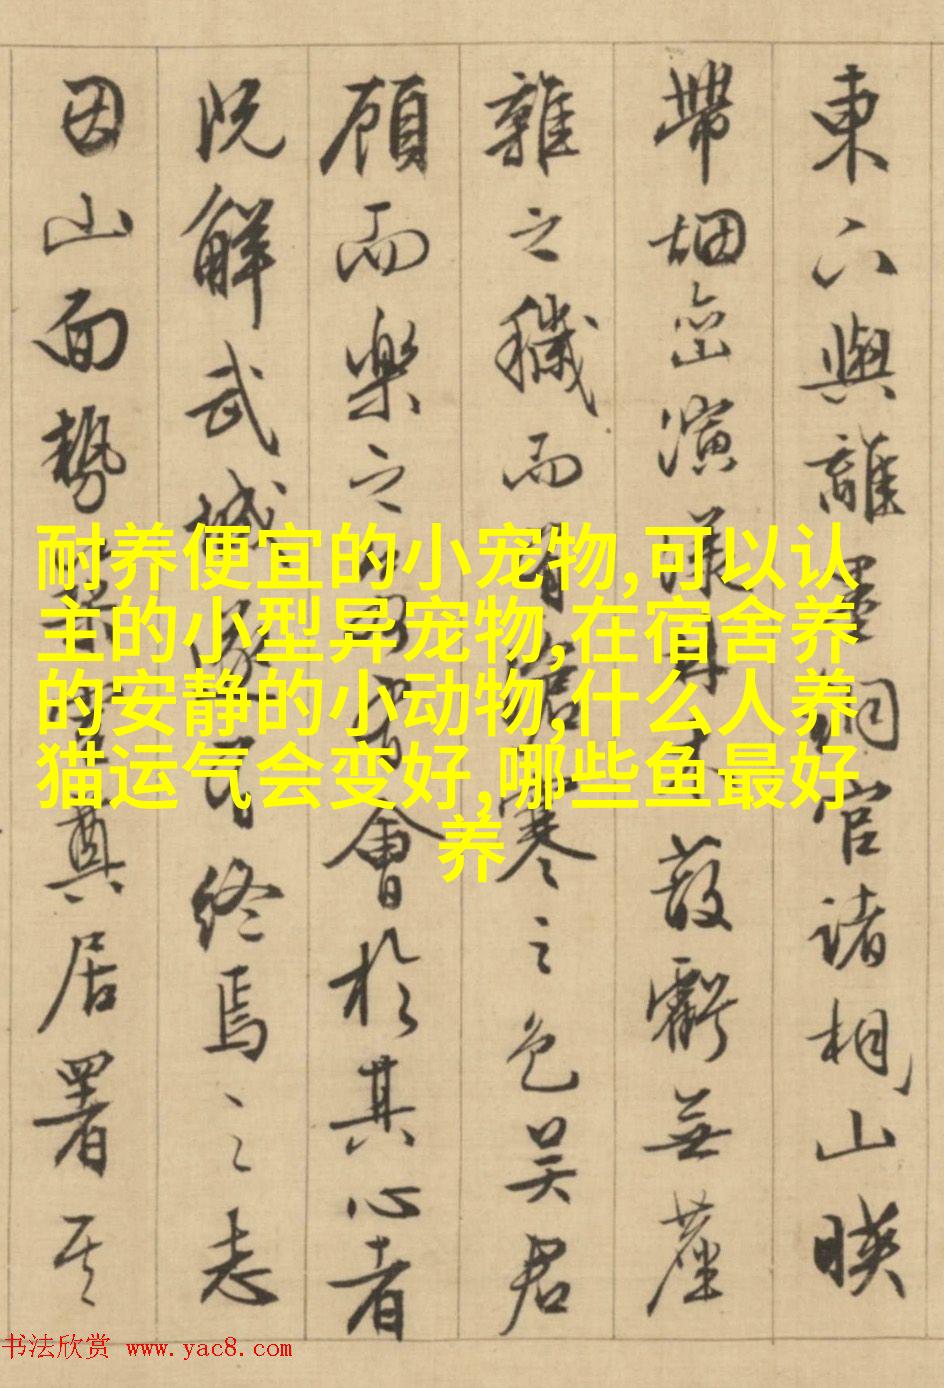 東六與離墨銅官諸相山暎
帶烟巒演漾
蔽虧無塵
雜之穢而有
寒之色吳君
顧而樂之
會於其心者
既解武城
終焉之志
因山面勢
奠居署其
耐养便宜的小宠物,可以认
主的小型异宠物,在宿舍养
的安静的小动物,什么人养
猫运气会变好,哪些鱼最好
养
书法欣赏 www.yac8.com